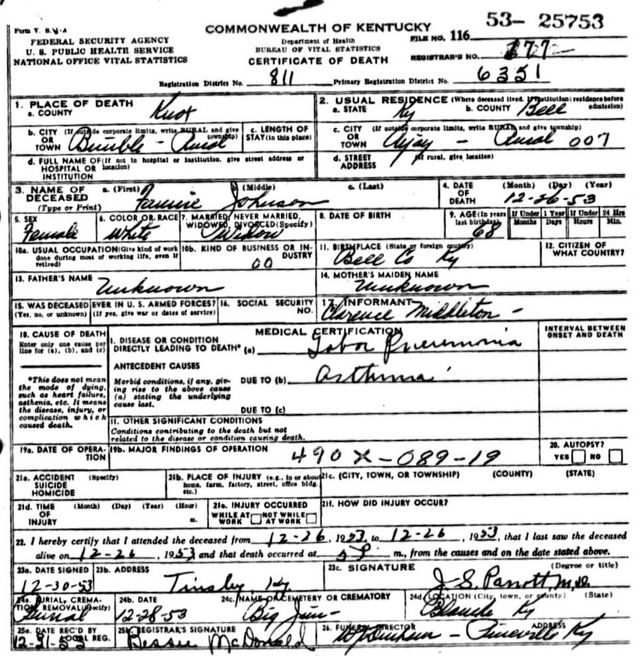 Form V. S. 1-A
FEDERAL SECURITY AGENCY
U. S. PUBLIC HEALTH SERVICE
NATIONAL OFFICE VITAL STATISTICS
COMMONWEALTH OF KENTUCKY
Department of Health
BUREAU OF VITAL STATISTICS
CERTIFICATE OF DEATH
53-25753
FILE NO. 116
REGISTRAR'S NO. 177
Registration District No. 811 Primary Registration District No. 6351
1. PLACE OF DEATH
a. COUNTY Knox
2. USUAL RESIDENCE (Where deceased lived. If institution: residence before admission)
a. STATE Ky b. COUNTY Bell
b. CITY (If outside corporate limits, write RURAL and give township)
OR TOWN Bimble - Rural
c. LENGTH OF STAY (in this place)
c. CITY (If outside corporate limits, write RURAL and give township)
OR TOWN Ajay - Rural 007
d. FULL NAME OF (If not in hospital or institution, give street address or location)
HOSPITAL OR INSTITUTION
d. STREET ADDRESS (If rural, give location)
3. NAME OF DECEASED (Type or Print)
a. (First) b. (Middle) c. (Last)
Fannie Johnson
4. DATE OF DEATH (Month) (Day) (Year)
12-26-53
5. SEX
Female
6. COLOR OR RACE
White
7. MARRIED, NEVER MARRIED, WIDOWED, DIVORCED (Specify)
Widow
8. DATE OF BIRTH
9. AGE (In years last birthday) 68
If Under 1 Year Months Days
If Under 24 Hrs Hours Min.
10a. USUAL OCCUPATION (Give kind of work done during most of working life, even if retired)
10b. KIND OF BUSINESS OR INDUSTRY
00
11. BIRTHPLACE (State or foreign country)
Bell Co Ky
12. CITIZEN OF WHAT COUNTRY?
13. FATHER'S NAME
Unknown
14. MOTHER'S MAIDEN NAME
Unknown
15. WAS DECEASED EVER IN U. S. ARMED FORCES?
(Yes, no, or unknown) (If yes, give war or dates of service)
16. SOCIAL SECURITY NO.
17. INFORMANT
Clarence Middleton -
18. CAUSE OF DEATH
Enter only one cause per line for (a), (b), and (c)
*This does not mean the mode of dying, such as heart failure, asthenia, etc. It means the disease, injury, or complication which caused death.
MEDICAL CERTIFICATION
INTERVAL BETWEEN ONSET AND DEATH
I. DISEASE OR CONDITION
DIRECTLY LEADING TO DEATH* (a) Lobor Pneumonia
ANTECEDENT CAUSES
Morbid conditions, if any, giving rise to the above cause (a) stating the underlying cause last.
DUE TO (b) Asthma
DUE TO (c)
II. OTHER SIGNIFICANT CONDITIONS
Conditions contributing to the death but not related to the disease or condition causing death.
19a. DATE OF OPERATION
19b. MAJOR FINDINGS OF OPERATION
490X-089-19
20. AUTOPSY?
YES NO
21a. ACCIDENT SUICIDE HOMICIDE (Specify)
21b. PLACE OF INJURY (e.g., in or about home, farm, factory, street, office bldg. etc.)
21c. (CITY, TOWN, OR TOWNSHIP) (COUNTY) (STATE)
21d. TIME OF INJURY (Month) (Day) (Year) (Hour) m.
21e. INJURY OCCURRED
WHILE AT WORK NOT WHILE AT WORK
21f. HOW DID INJURY OCCUR?
22. I hereby certify that I attended the deceased from 12-26, 1953 to 12-26, 1953, that I last saw the deceased
alive on 12-26, 1953 and that death occurred at m., from the causes and on the date stated above.
23a. DATE SIGNED
12-30-53
23b. ADDRESS
Tinsley Ky
23c. SIGNATURE (Degree or title)
J. S. Parrott M.D.
24a. BURIAL, CREMATION, REMOVAL (Specify)
Burial
24b. DATE
12-28-53
24c. NAME OF CEMETERY OR CREMATORY
Big Jim -
24d. LOCATION (City, town, or county) (State)
Blanche Ky
25a. DATE REC'D BY LOCAL REG.
12-31-53
25b. REGISTRAR'S SIGNATURE
Bessie McDonald
26. FUNERAL DIRECTOR ADDRESS
Durham - Pineville Ky